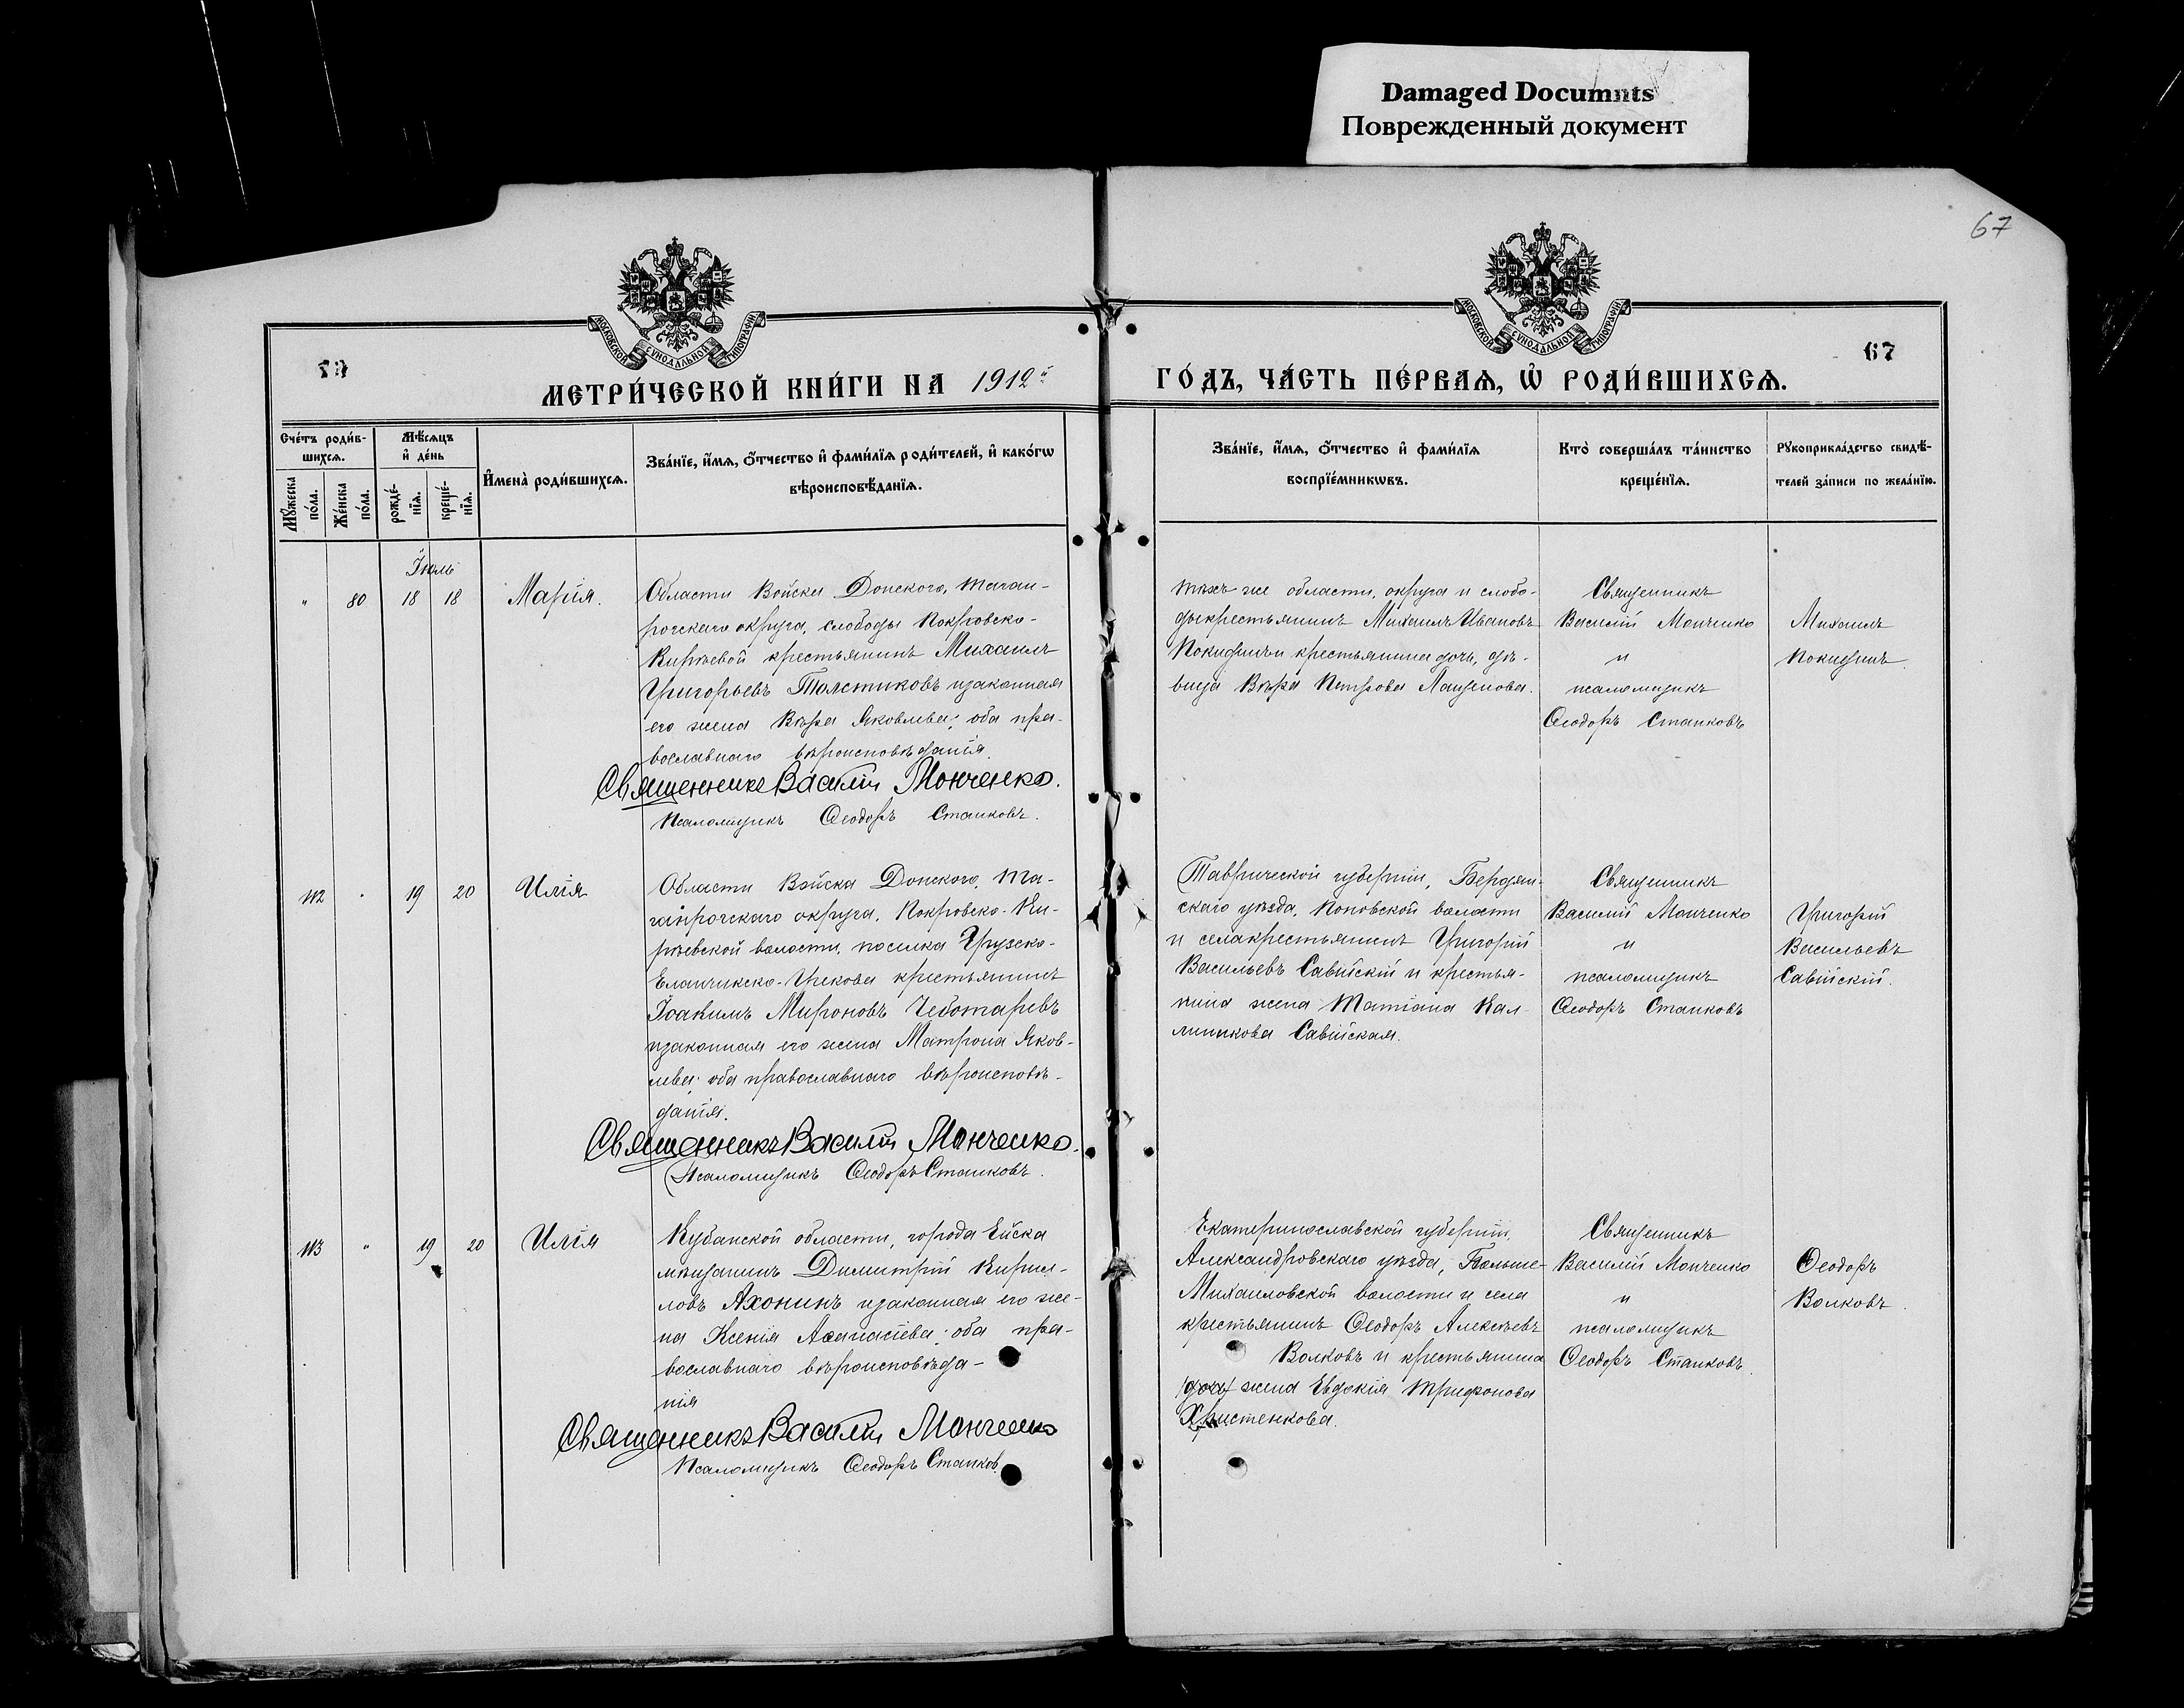 Damaged Documnts
Поврежденный документ
67
МОСКОВСКОЙ СѴНОДАЛЬНОЙ ТИПОГРАФІИ
МОСКОВСКОЙ СѴНОДАЛЬНОЙ ТИПОГРАФІИ
67
МЕТРИ́ЧЕСКОЙ КНИ́ГИ НА 1912й
ГО́ДЪ, ЧА́СТЬ ПЕ́РВАѦ, Ѡ҆ РОДИ́ВШИХСѦ.
Сче́тъ роди́в-
шихсѧ.
Мѣ́сѧцъ
и҆ де́нь
И҆мена̀ роди́вшихсѧ.
Зва́нїе, и҆́мѧ, о҆́тчество и҆ фами́лїѧ роди́телей, и҆ како́гѡ
вѣроисповѣ́данїѧ.
Мꙋ́жеска
по́ла.
Же́нска
по́ла.
рожде́-
нїѧ.
креще́-
нїѧ.
Зва́нїе, и҆́мѧ, о҆́тчество и҆ фами́лїѧ
воспрїе́мникѡвъ.
Кто̀ соверша́лъ та́инство
креще́нїѧ.
Рꙋкоприкла́дство свидѣ́-
телей за́писи по жела́нїю.
Іюль
" 80 18 18 Марія.
Области Войска Донского, Таган-
рогскаго округа, слободы Покровско-
Кирѣевой крестьянинъ Михаилъ
Григорьевъ Толстиковъ и законная
его жена Вѣра Яковлева; оба пра-
вославнаго вѣроисповѣданія.
Священникъ Василій Монченко.
Псаломщикъ Ѳеодоръ Станковъ.
тѣхъ же области, округа и слобо-
ды крестьянинъ Михаилъ Ивановъ
крестьянина дочь, дѣ-
вица Вѣра Петрова Лащенова.
Священникъ
Василій Монченко
и
псаломщикъ
Ѳеодоръ Станковъ
Михаилъ
112 " 19 20 Илія
Области Войска Донского, Та-
ганрогскаго округа, Покровско-Ки-
рѣевской волости, поселка Грузско-
Еланчикско-Грекова крестьянинъ
Іоакимъ Мироновъ Чеботаревъ
и законная его жена Матрона Яков-
лева; оба православнаго вѣроисповѣ-
данія.
Священникъ Василій Монченко.
Псаломщикъ Ѳеодоръ Станковъ.
Таврической губерніи, Бердян-
скаго уѣзда, Поповской волости
и села крестьянинъ Григорій
Васильевъ Савійскій и крестья-
нина жена Татіана Кал-
линикова Савійская.
Священникъ
Василій Монченко
и
псаломщикъ
Ѳеодоръ Станковъ
Григорій
Васильевъ
Савійскій.
113 " 19 20 Илія
Кубанской области, города Ейска
мѣщанинъ Димитрій Кирил-
ловъ Ахонинъ и законная его же-
на Ксенія Аѳанасіева; оба пра-
вославнаго вѣроисповѣда-
нія
Священникъ Василій Монченко
Псаломщикъ Ѳеодоръ Станков
Екатеринославской губерніи,
Александровскаго уѣзда, Больше-
Михаиловской волости и села
крестьянинъ Ѳеодоръ Алексѣевъ
Волковъ и крестьянина
жена Евдокія Трифонова
Христенкова.
Священникъ
Василій Монченко
и
псаломщикъ
Ѳеодоръ Станковъ.
Ѳеодоръ
Волковъ.